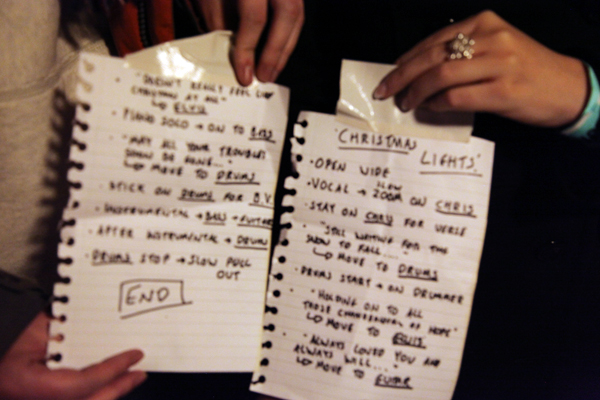 "DOESN'T REALLY FEEL LIKE
CHRISTMAS AT ALL"
↳ ELVIS
· PIANO SOLO → ON TO KEYS
· "MAY ALL YOUR TROUBLES
SOON BE GONE..."
↳ MOVE TO DRUMS
· STICK ON DRUMS FOR B.V.
· INSTRUMENTAL → BASS → GUITAR
· AFTER INSTRUMENTAL → DRUMS
· DRUMS STOP → SLOW PULL
OUT
END
"CHRISTMAS
LIGHTS"
· OPEN WIDE
· VOCAL → SLOW ZOOM ON CHRIS
· STAY ON CHRIS FOR VERSE
· "STILL WAITING FOR THE
SNOW TO FALL...."
↳ MOVE TO DRUMS
· DRUMS START → ON DRUMMER
· "HOLDING ON TO ALL
THOSE CHANDELIERS OF HOPE"
↳ MOVE TO ELVIS
· "ALWAYS LOVED YOU AND
ALWAYS WILL..."
↳ MOVE TO GUITAR